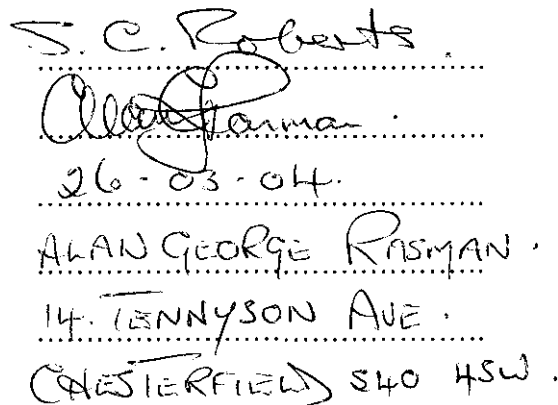 S. C. Roberts.
26-03-04.
ALAN GEORGE RASMAN.
14. TENNYSON AVE.
CHESTERFIELD S40 4SW.